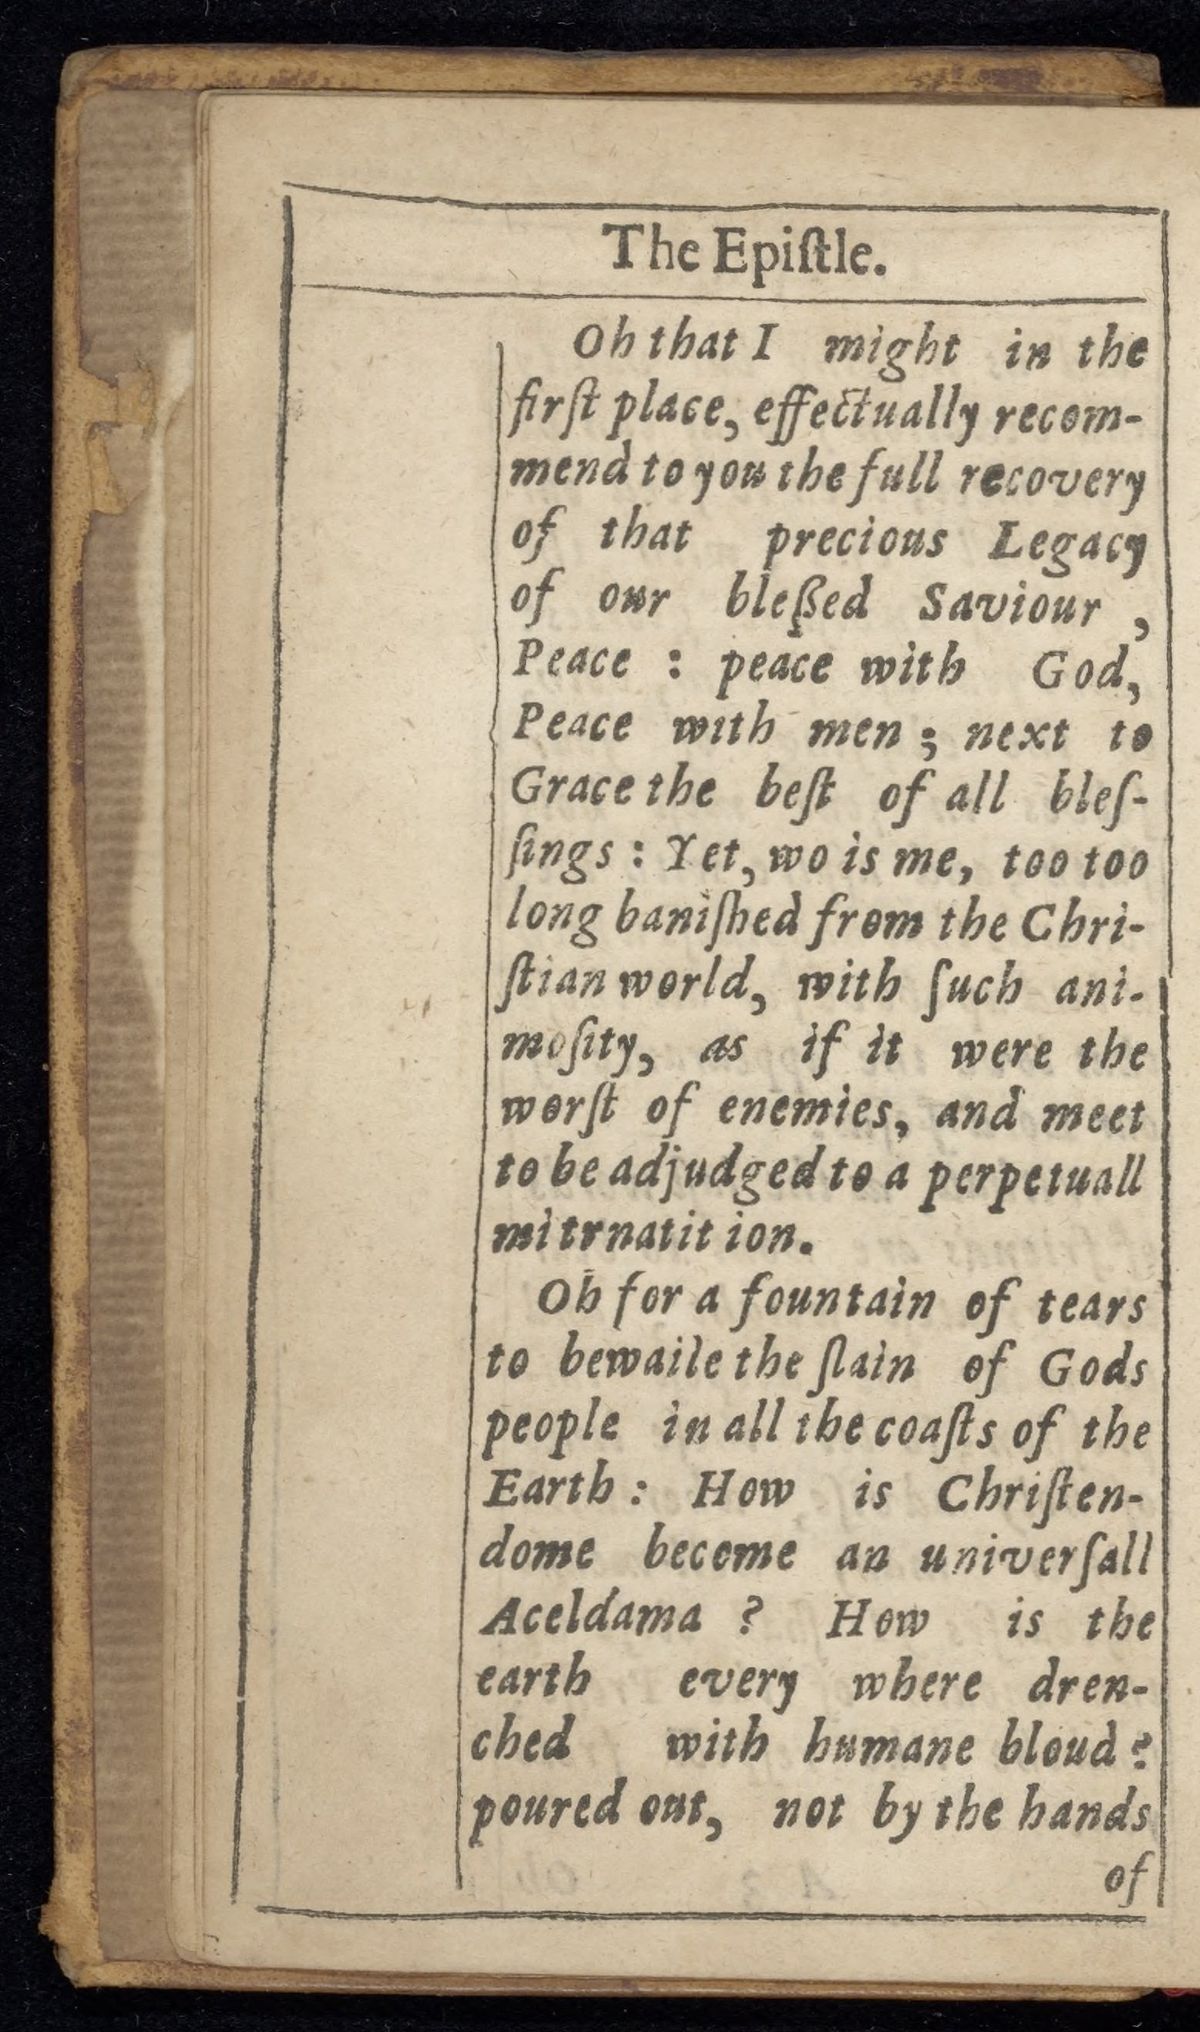 The Epiſtle.
Oh that I might in the
firſt place, effectually recom-
mend to you the full recovery
of that precious Legacy
of our bleßed Saviour ,
Peace : peace with God,
Peace with men ; next to
Grace the beſt of all bleſ-
ſings : Yet, wo is me, too too
long baniſhed from the Chri-
ſtian world, with ſuch ani-
moſity, as if it were the
worſt of enemies, and meet
to be adjudged to a perpetuall
mitrnatit ion.
Oh for a fountain of tears
to bewaile the ſlain of Gods
people in all the coaſts of the
Earth : How is Chriſten-
dome become an univerſall
Aceldama ? How is the
earth every where dren-
ched with humane bloud ?
poured out, not by the hands
of